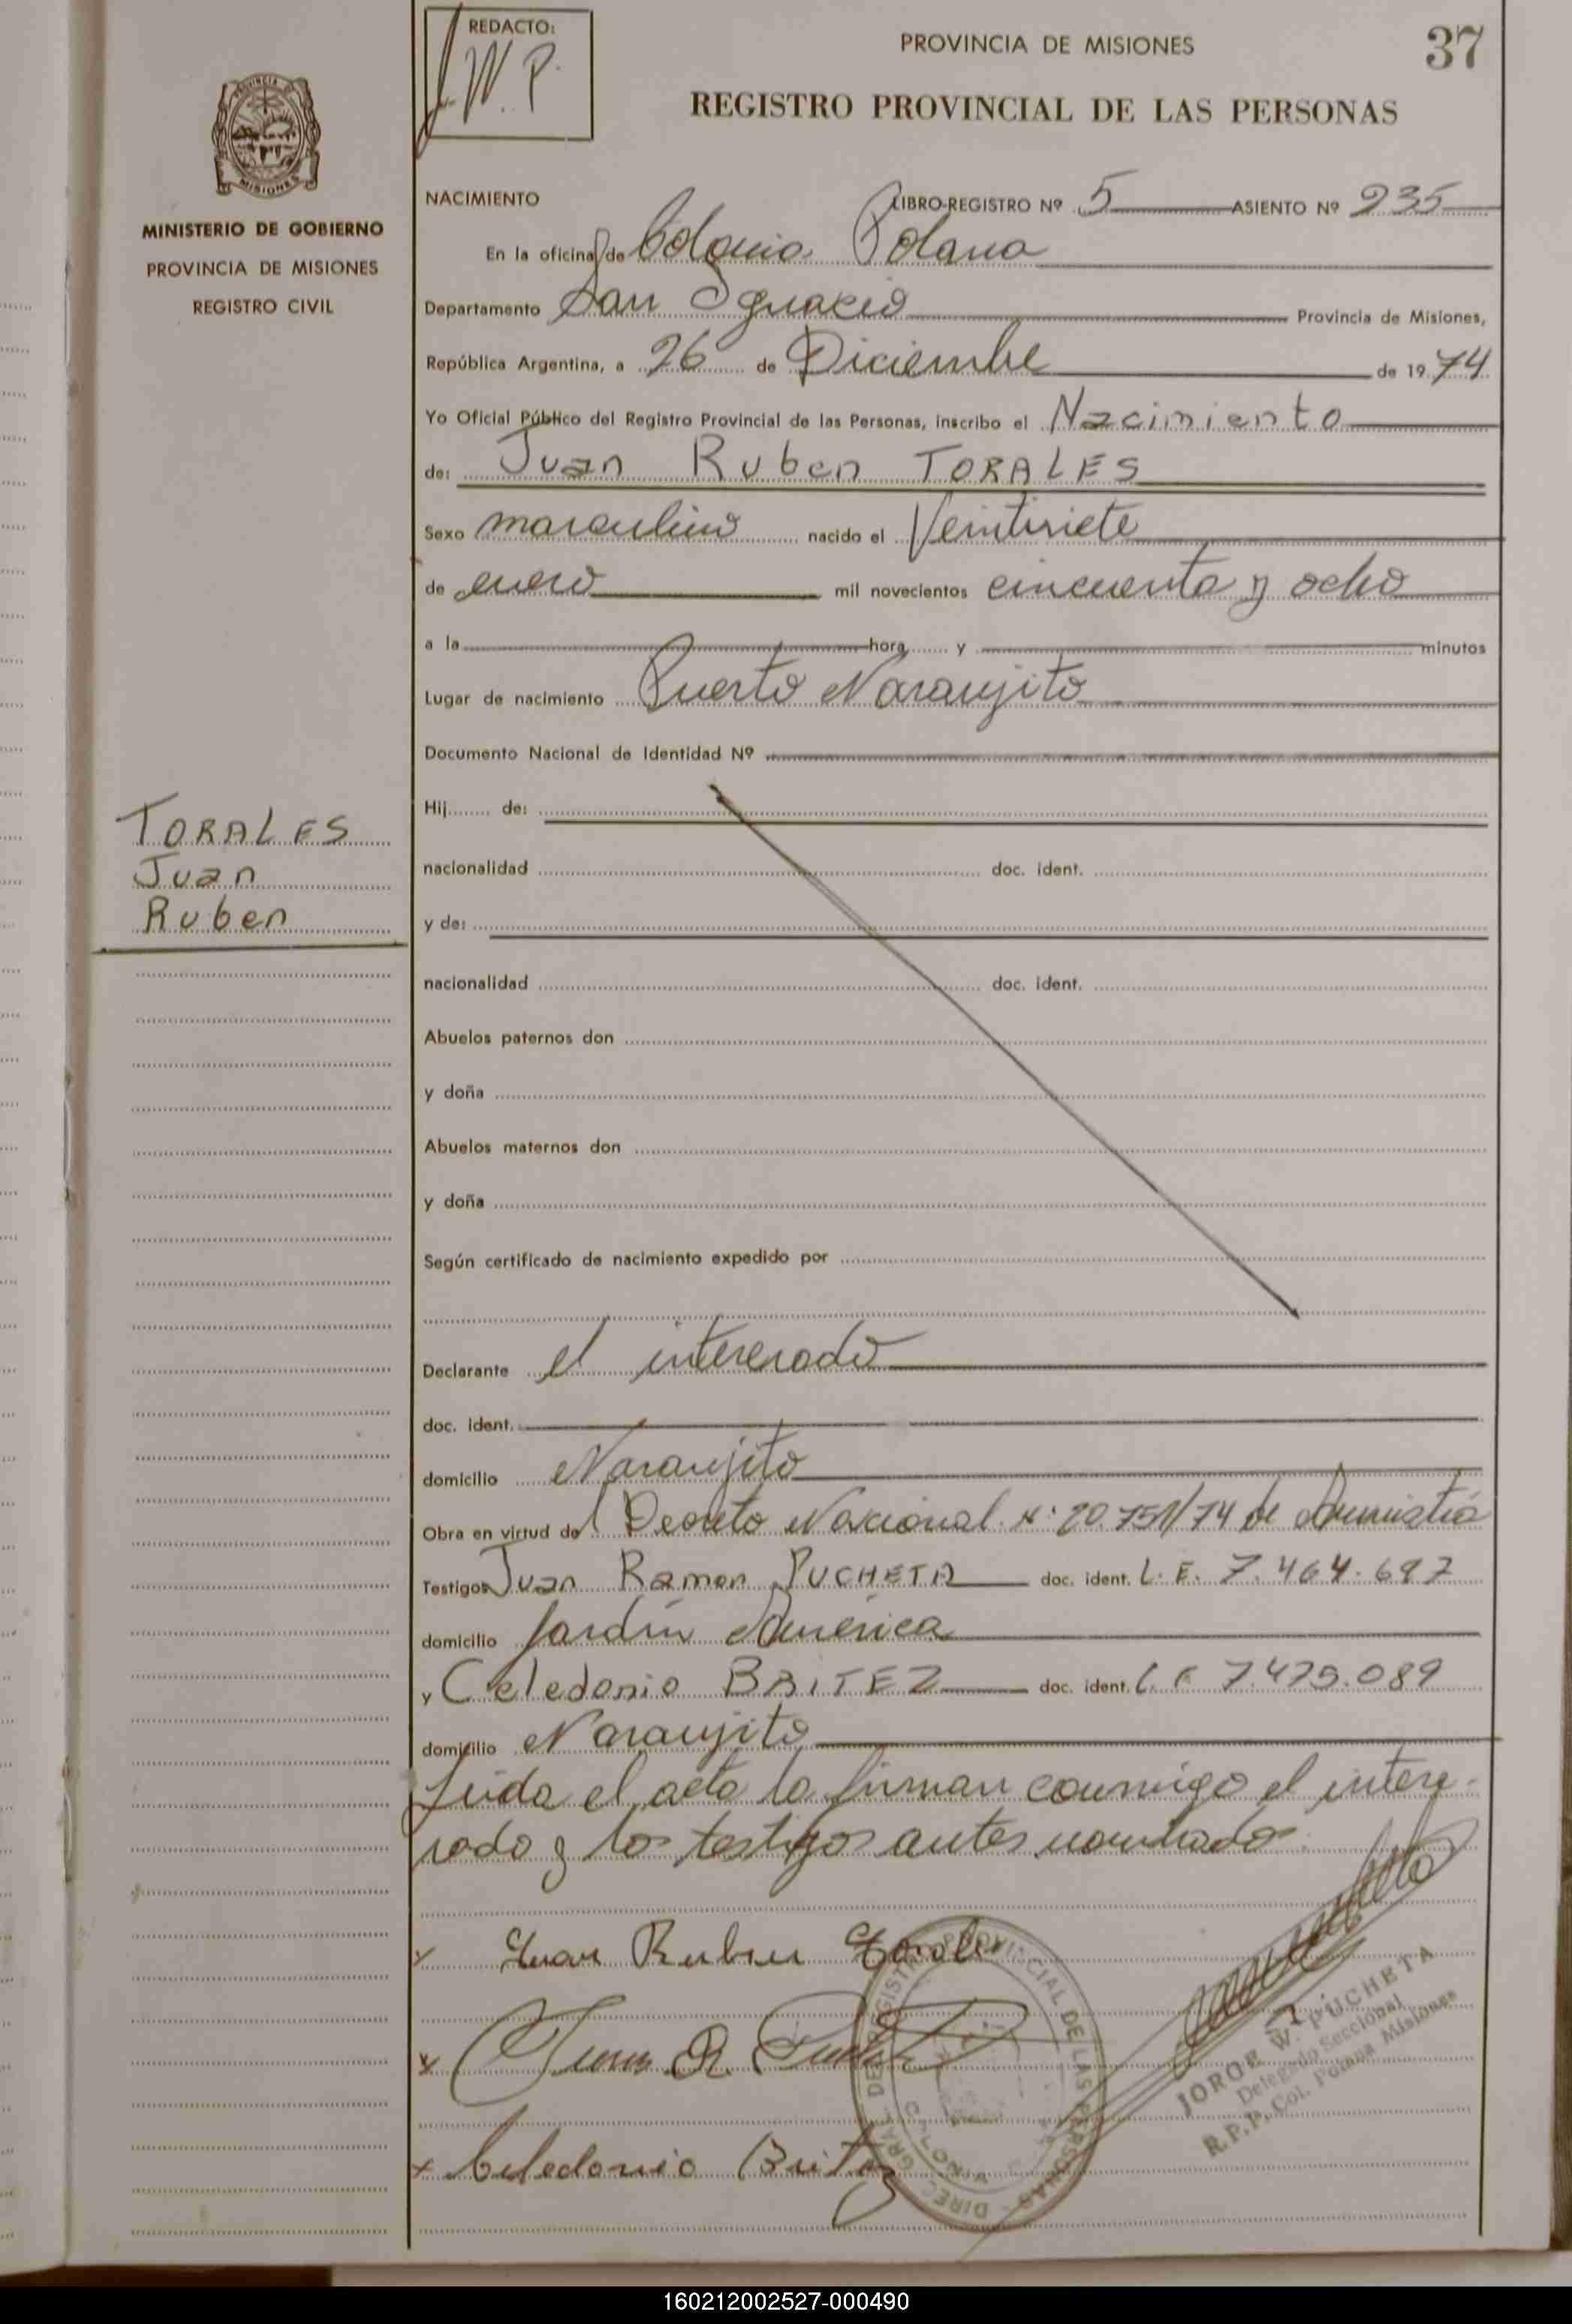 REDACTO:
J.W.P.
PROVINCIA DE MISIONES
37
REGISTRO PROVINCIAL DE LAS PERSONAS
PROVINCIA DE
MISIONES
MINISTERIO DE GOBIERNO
PROVINCIA DE MISIONES
REGISTRO CIVIL
NACIMIENTO LIBRO-REGISTRO Nº 5 ASIENTO Nº 235
En la oficina de Colonia Polana
Departamento San Ignacio Provincia de Misiones,
República Argentina, a 26 de Diciembre de 1974
Yo Oficial Público del Registro Provincial de las Personas, inscribo el Nacimiento
de: Juan Ruben TORALES
Sexo masculino nacido el Veintisiete
de enero mil novecientos cincuenta y ocho
a la hora y minutos
Lugar de nacimiento Puerto Naranjito
Documento Nacional de Identidad Nº
TORALES
Juan
Ruben
Hij de:
nacionalidad doc. ident.
y de:
nacionalidad doc. ident.
Abuelos paternos don
y doña
Abuelos maternos don
y doña
Según certificado de nacimiento expedido por
Declarante el interesado
doc. ident.
domicilio Naranjito
Obra en virtud del Decreto Nacional Nº 20.751/74 de Amnistía
Testigos Juan Ramon PUCHETA doc. ident. L.E. 7.464.697
domicilio Jardín América
y Celedonio BRITEZ doc. ident. L.E 7.475.089
domicilio Naranjito
Leida el acta la firman conmigo el intere-
sado y los testigos antes nombrados.
x Juan Ruben Torales
x Juan R. Pucheta
x Celedonio Britez
DIREC. GRAL. DEL REGISTRO PROVINCIAL DE LAS PERSONAS
JORGE W. PUCHETA
Delegado Seccional
R.P.P. Col. Polana Misiones
160212002527-000490